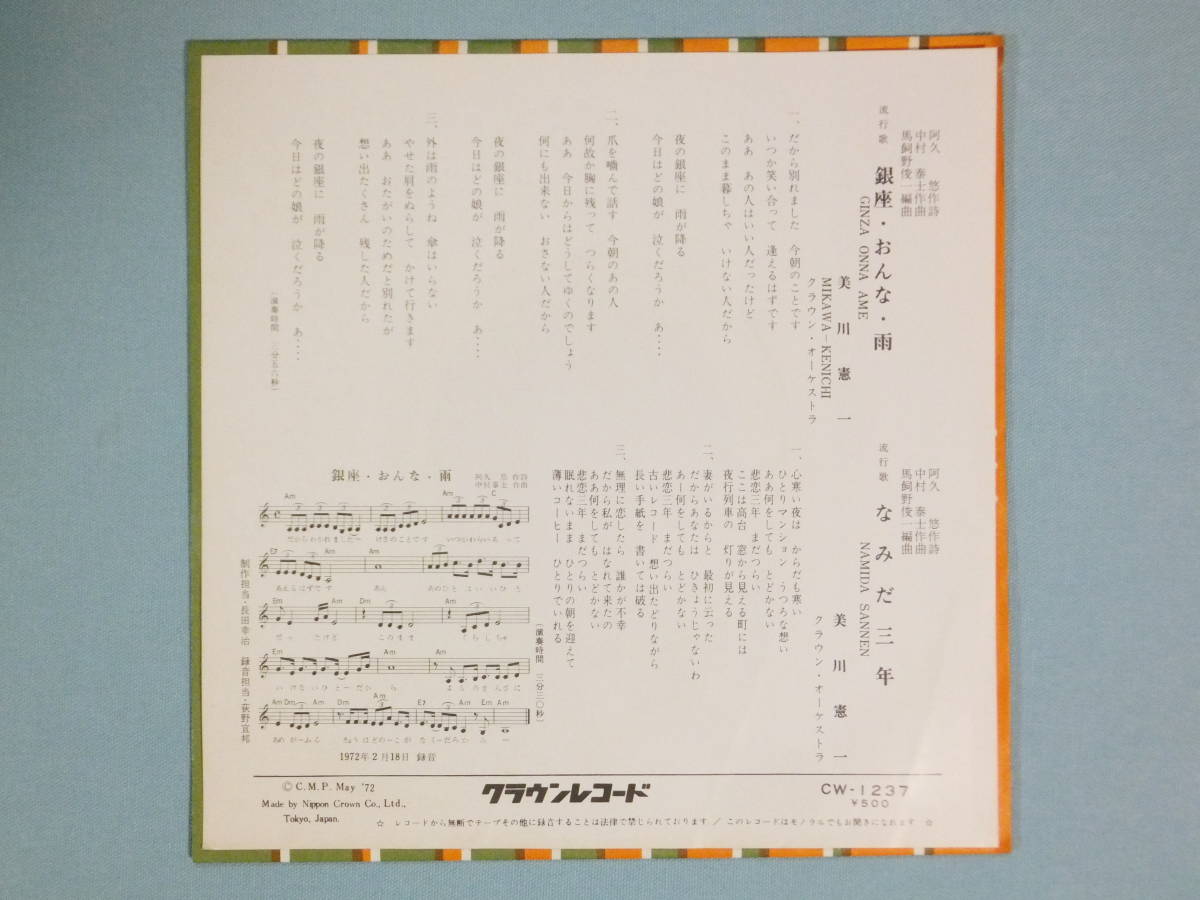 流行歌
銀座・おんな・雨
GINZA ONNA AME
阿久 悠作詩
中村 泰士作曲
馬飼野俊一編曲
美川憲一
MIKAWA-KENICHI
クラウン・オーケストラ
一、だから別れました 今朝のことです
いつか笑い合って 逢えるはずです
ああ あの人はいい人だったけど
このまま暮しちゃ いけない人だから
夜の銀座に 雨が降る
今日はどの娘が 泣くだろうか あ・・・・
二、爪を噛んで話す 今朝のあの人
何故か胸に残って つらくなります
ああ 今日からはどうしてゆくのでしょう
何にも出来ない おさない人だから
夜の銀座に 雨が降る
今日はどの娘が 泣くだろうか あ・・・・
三、外は雨のようね 傘はいらない
やせた肩をぬらして かけて行きます
ああ おたがいのためだと別れたが
想い出たくさん 残した人だから
夜の銀座に 雨が降る
今日はどの娘が 泣くだろうか あ・・・・
(演奏時間 三分五六秒)
流行歌
なみだ三年
NAMIDA SANNEN
阿久 悠作詩
中村 泰士作曲
馬飼野俊一編曲
美川憲一
クラウン・オーケストラ
一、心寒い夜は からだも寒い
ひとりマンション うつろな想い
ああ何をしても とどかない
悲恋三年 まだつらい
ここは高台 窓から見える町には
夜行列車の 灯りが見える
二、妻がいるからと 最初に云った
だからあなたは ひきょうじゃないわ
あー何をしても とどかない
悲恋三年 まだつらい
古いレコード 想い出たどりながら
長い手紙を 書いては破る
三、無理に恋したら 誰かが不幸
だから私が はなれて来たの
ああ何をしても とどかない
悲恋三年 まだつらい
眠れないまま ひとりの朝を迎えて
薄いコーヒー ひとりでいれる
(演奏時間 三分三〇秒)
銀座・おんな・雨
阿久 悠 作詩
中村泰士 作曲
だからわかれました けさのことです いつかわらいあって
あえるはずです ああ あのひとはいいひと
だったけど このまま くらしちゃ
いけないひとだから よるのぎんざに
あめがふる きょうはどのこが なくだろうか あー
1972年2月18日 録音
制作担当・長田幸治 録音担当・荻野宜邦
Ⓒ C.M.P. May '72
Made by Nippon Crown Co., Ltd.,
Tokyo, Japan.
クラウンレコード
CW-1237
¥500
☆ レコードから無断でテープその他に録音することは法律で禁じられております / このレコードはモノラルでもお聞きになれます ☆